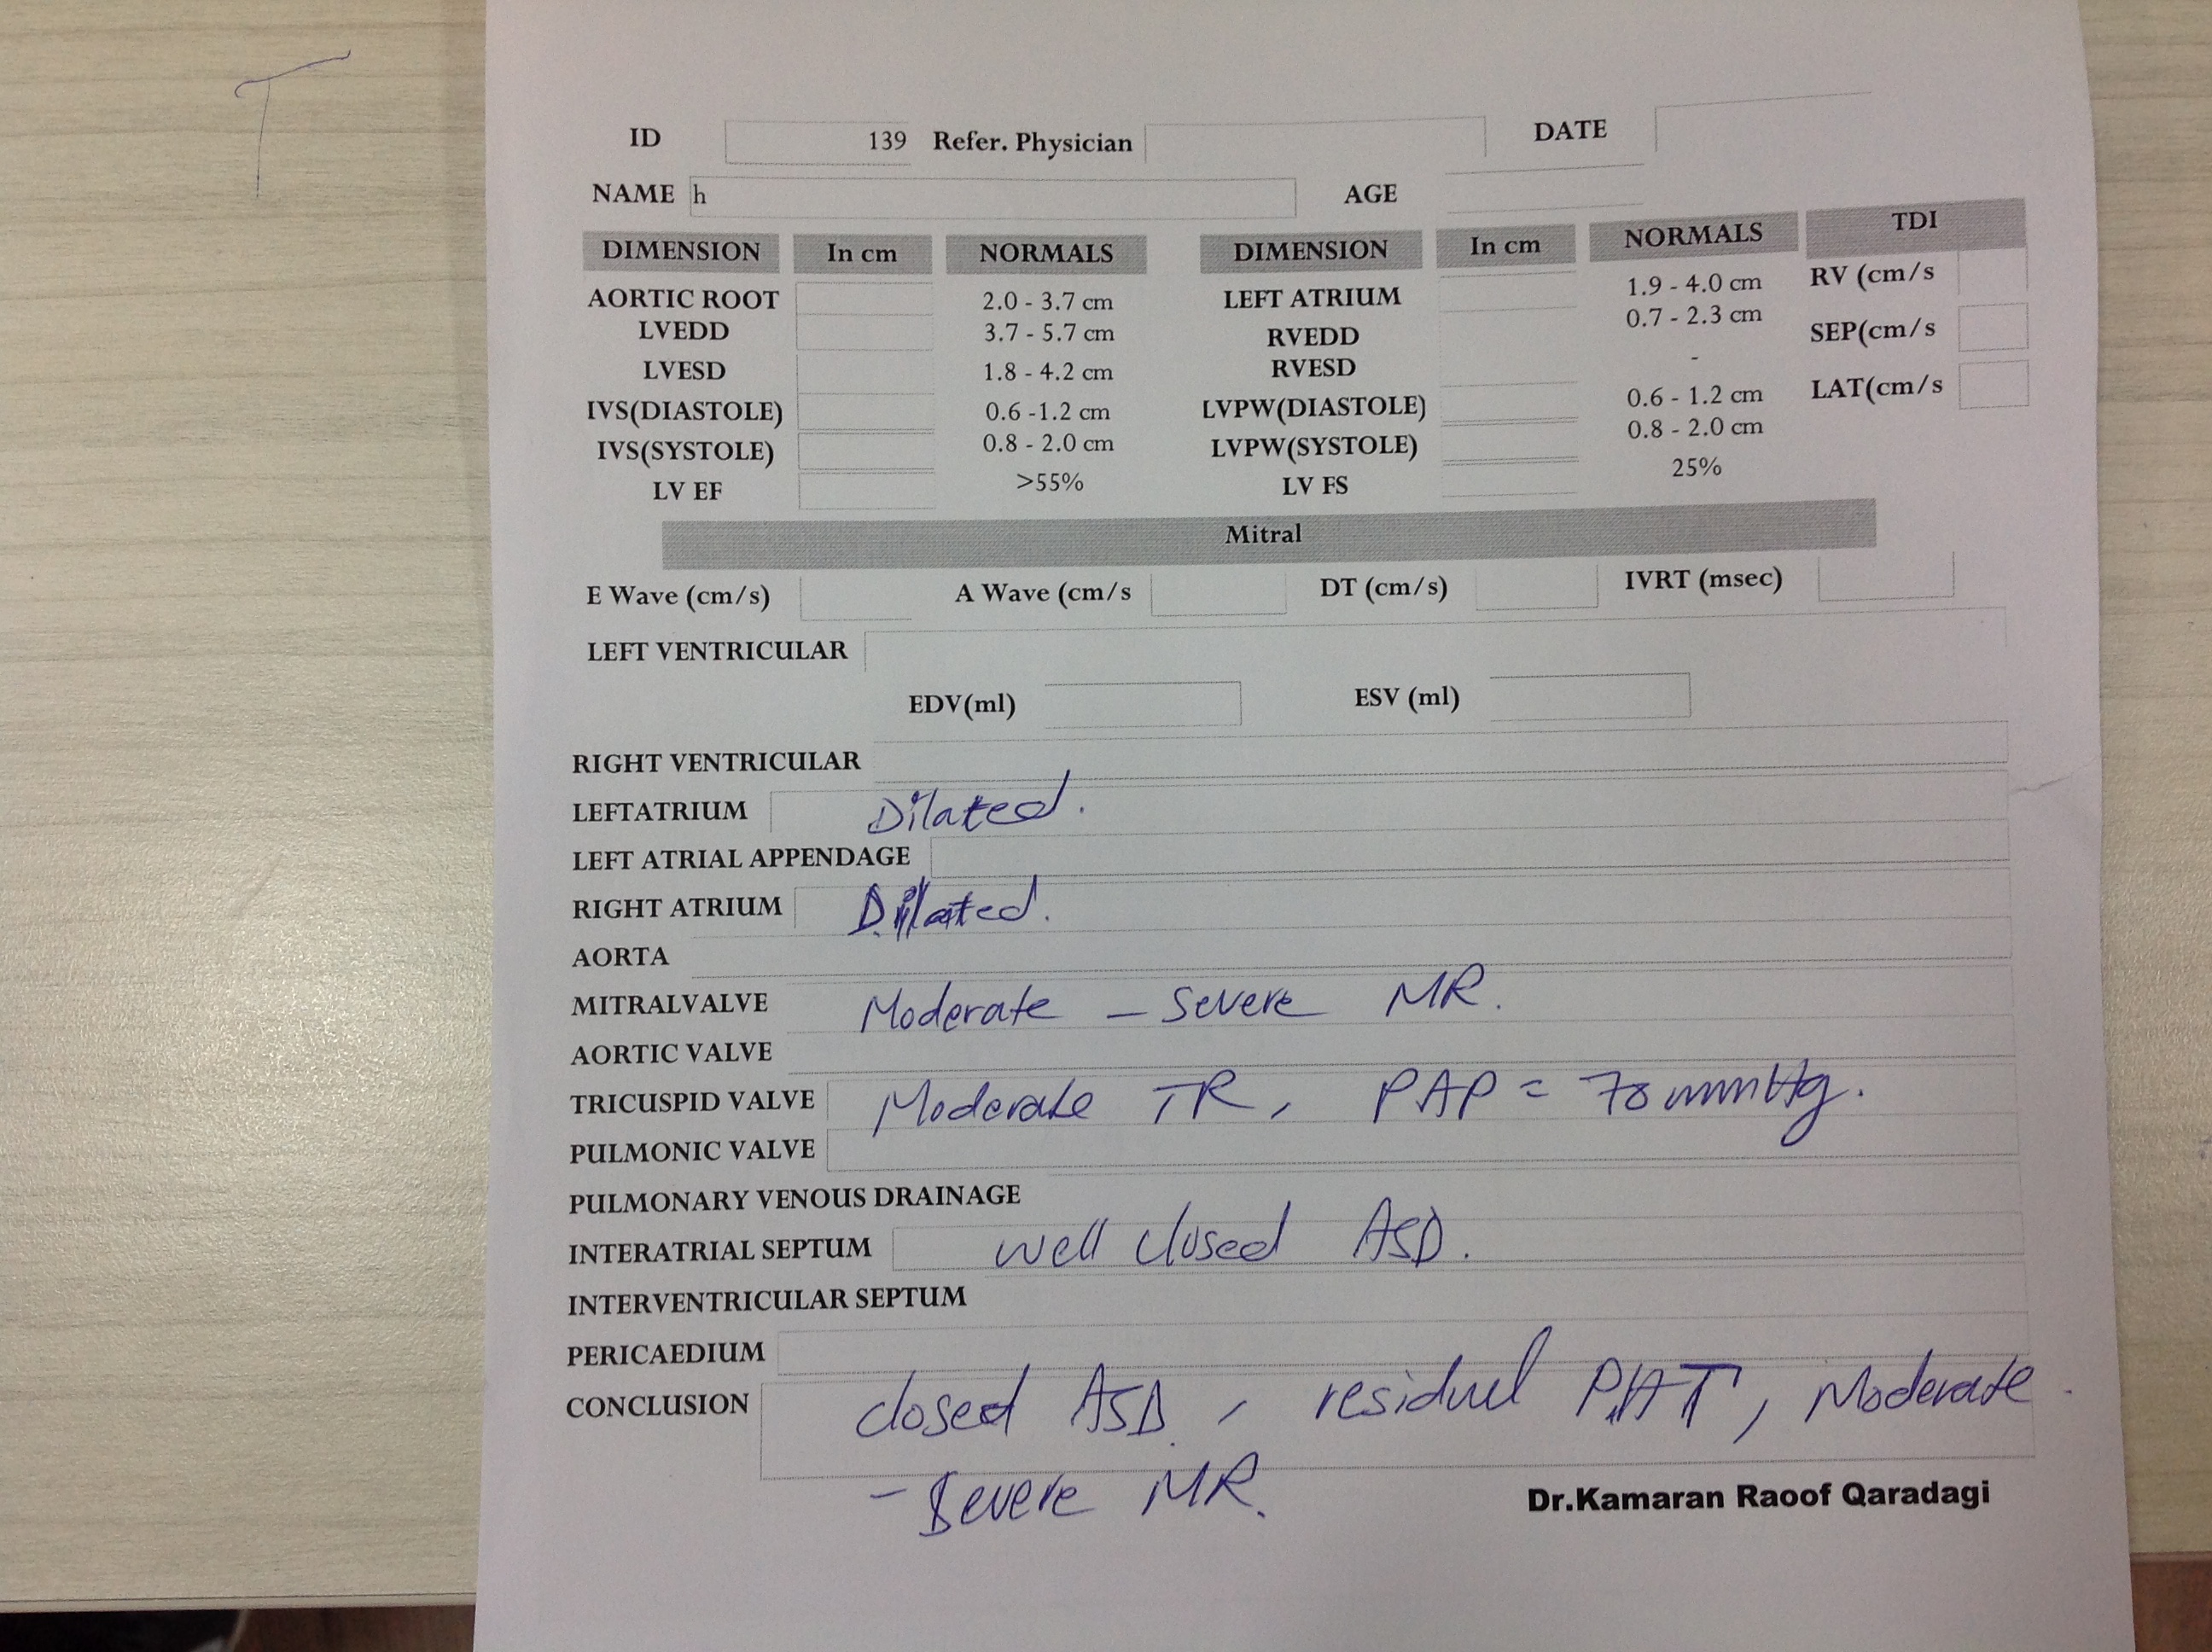 T
ID 139 Refer. Physician DATE
NAME h AGE
DIMENSION In cm NORMALS DIMENSION In cm NORMALS TDI
AORTIC ROOT 2.0 - 3.7 cm LEFT ATRIUM 1.9 - 4.0 cm RV (cm/s
LVEDD 3.7 - 5.7 cm RVEDD 0.7 - 2.3 cm SEP(cm/s
LVESD 1.8 - 4.2 cm RVESD -
IVS(DIASTOLE) 0.6 -1.2 cm LVPW(DIASTOLE) 0.6 - 1.2 cm LAT(cm/s
IVS(SYSTOLE) 0.8 - 2.0 cm LVPW(SYSTOLE) 0.8 - 2.0 cm
LV EF >55% LV FS 25%
Mitral
E Wave (cm/s) A Wave (cm/s DT (cm/s) IVRT (msec)
LEFT VENTRICULAR
EDV(ml) ESV (ml)
RIGHT VENTRICULAR
LEFTATRIUM Dilated.
LEFT ATRIAL APPENDAGE
RIGHT ATRIUM Dilated.
AORTA
MITRALVALVE Moderate - Severe MR.
AORTIC VALVE
TRICUSPID VALVE Moderate TR, PAP = 70 mmHg.
PULMONIC VALVE
PULMONARY VENOUS DRAINAGE
INTERATRIAL SEPTUM well closed ASD.
INTERVENTRICULAR SEPTUM
PERICAEDIUM
CONCLUSION closed ASD, residual PHT, Moderate
- Severe MR.
Dr.Kamaran Raoof Qaradagi